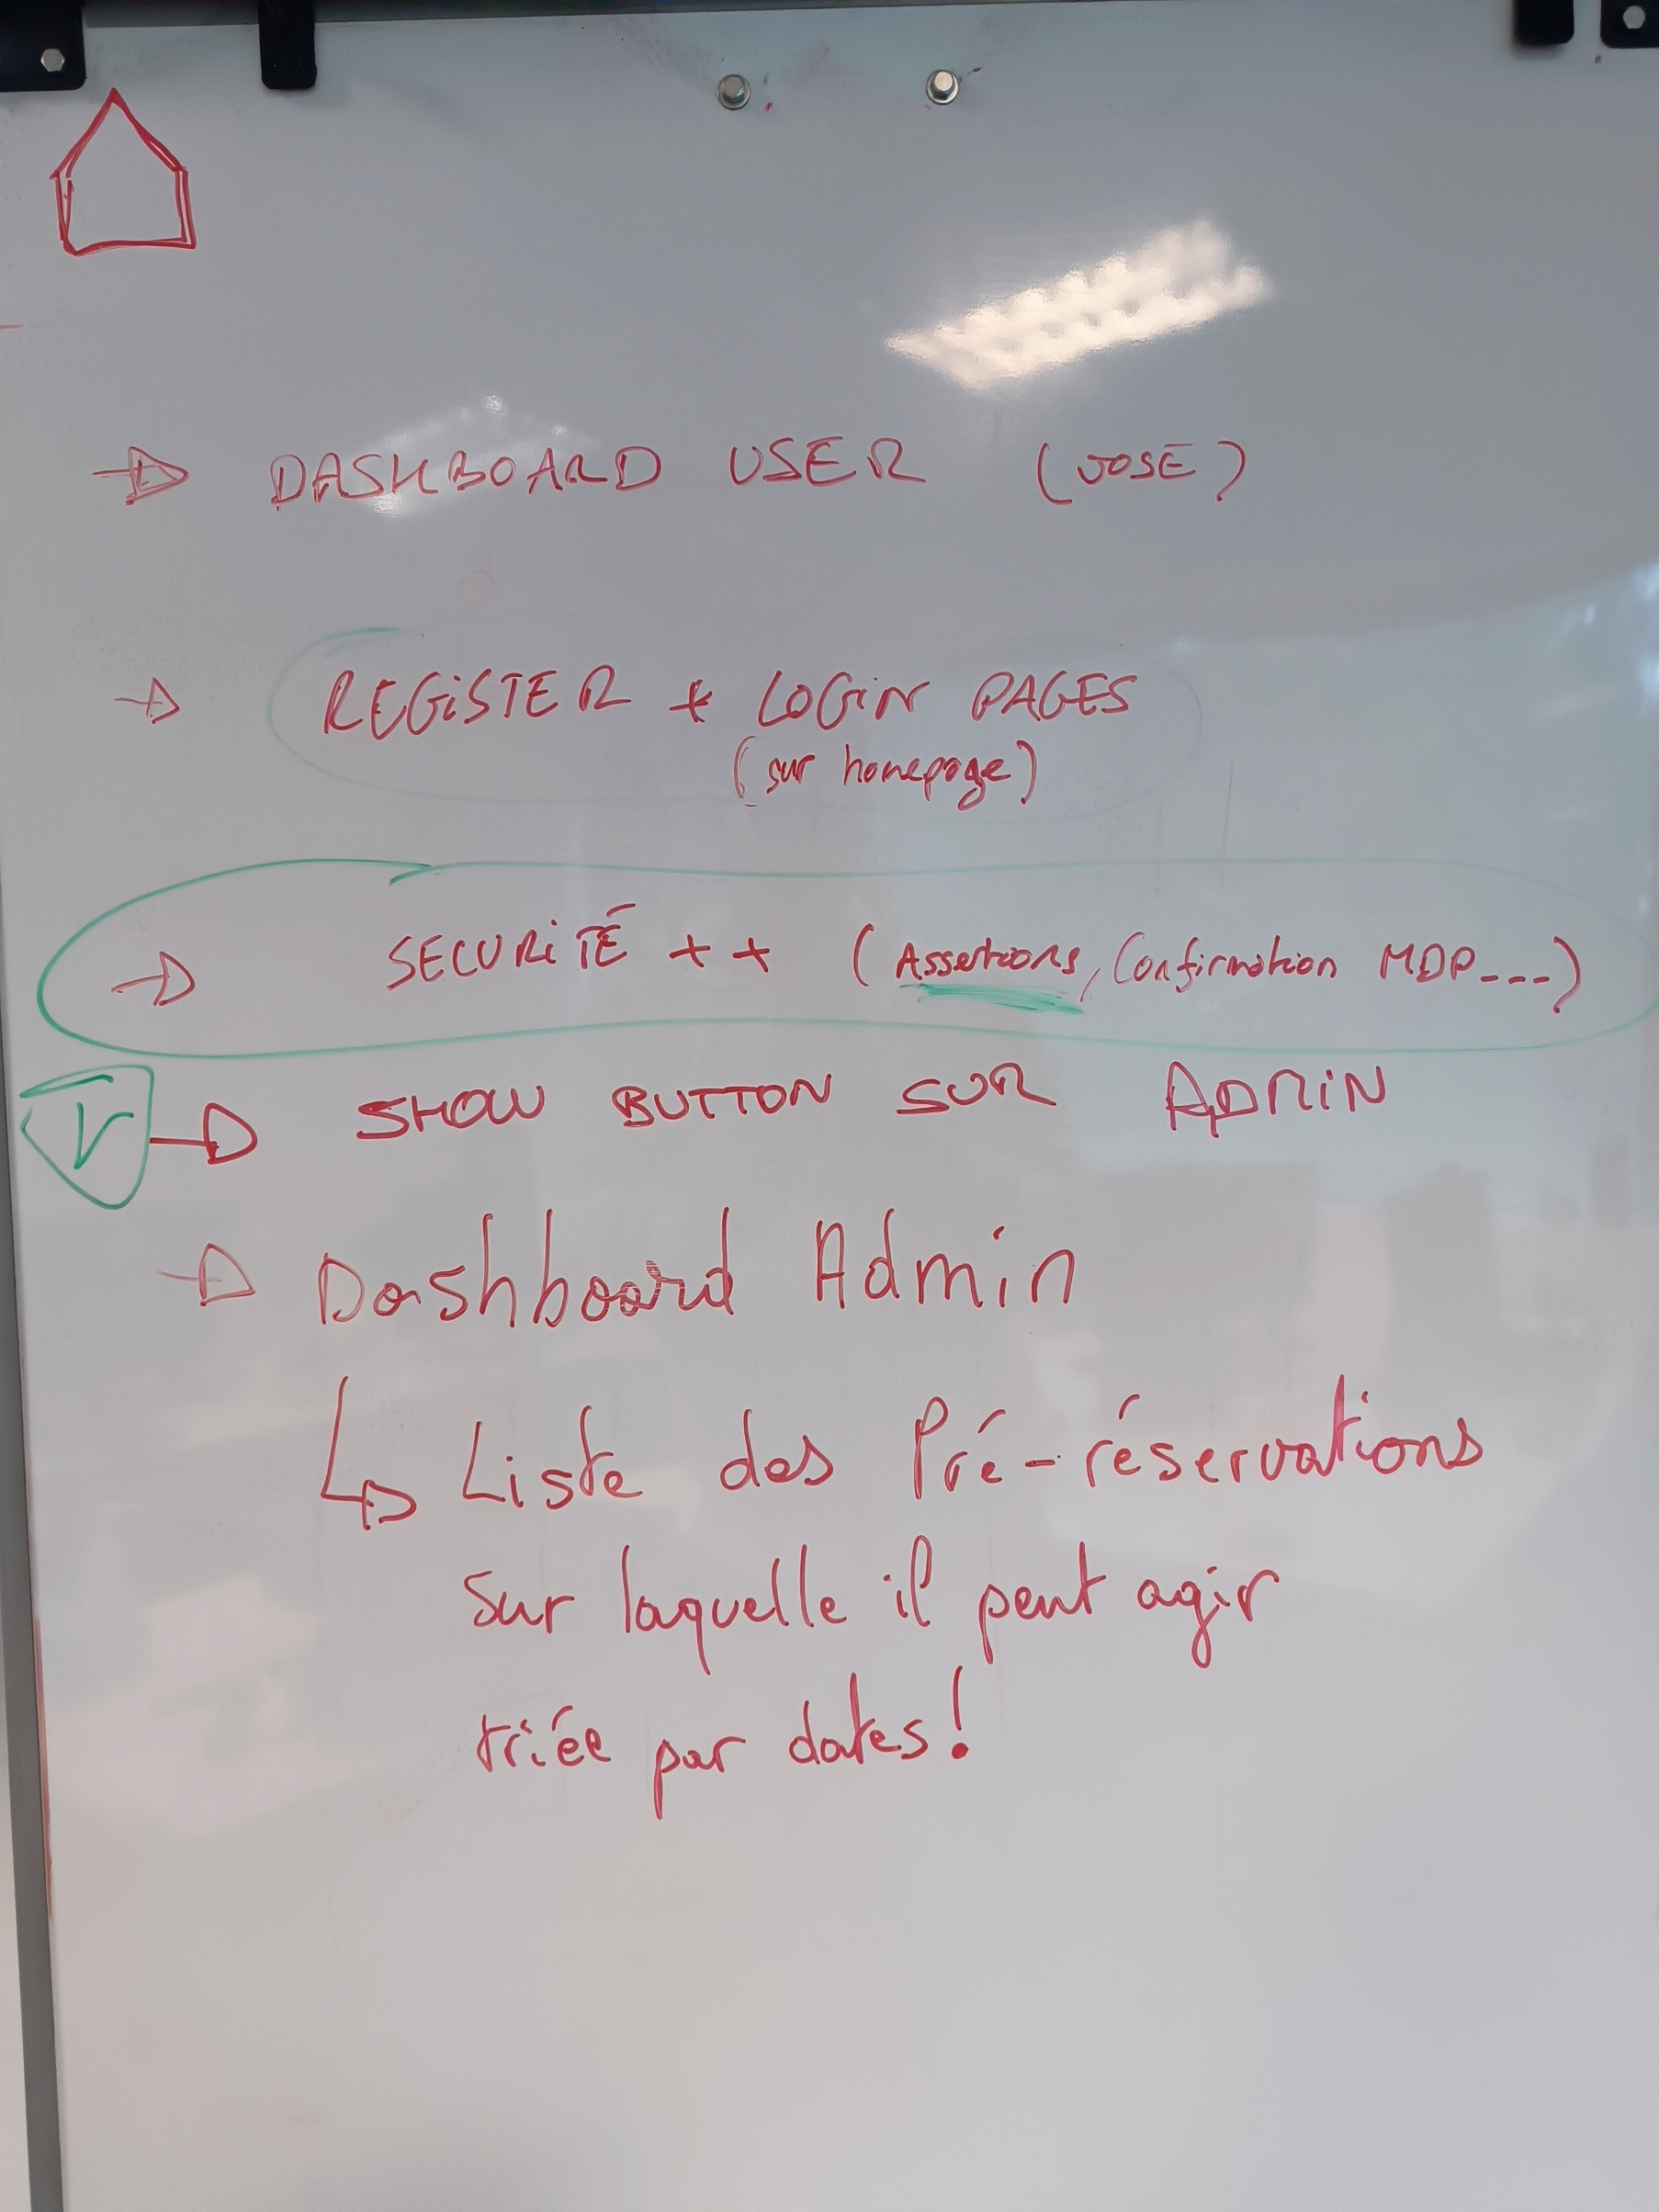 → DASHBOARD USER (JOSE)
→ REGiSTER + LOGiN PAGES
(sur homepage)
→ SECURiTÉ ++ (Assertions, Confirmation MDP----)
V → SHOW BUTTON SUR ADMiN
→ Dashboard Admin
↳ Liste des Pré-réservations
sur laquelle il peut agir
triée par dates!